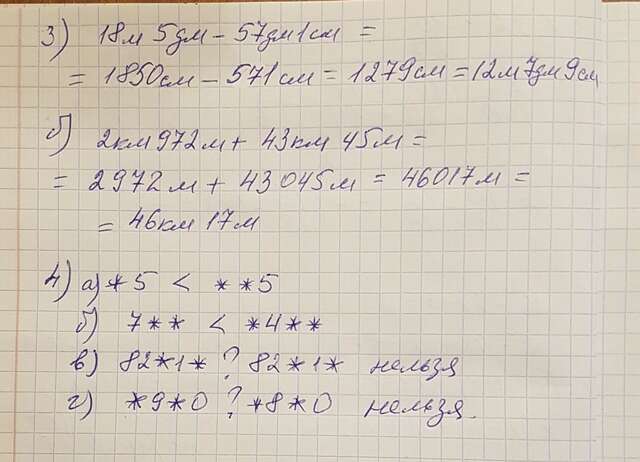 3) 18м 5дм - 57дм1см =
= 1850см - 571см = 1279см = 12м7дм9см
б) 2км972м + 43км 45м =
= 2972м + 43045м = 46017м =
= 46км 17м
4) а) *5 < **5
б) 7** < *4**
в) 82*1* ? 82*1* нельзя
г) *9*0 ? *8*0 нельзя.